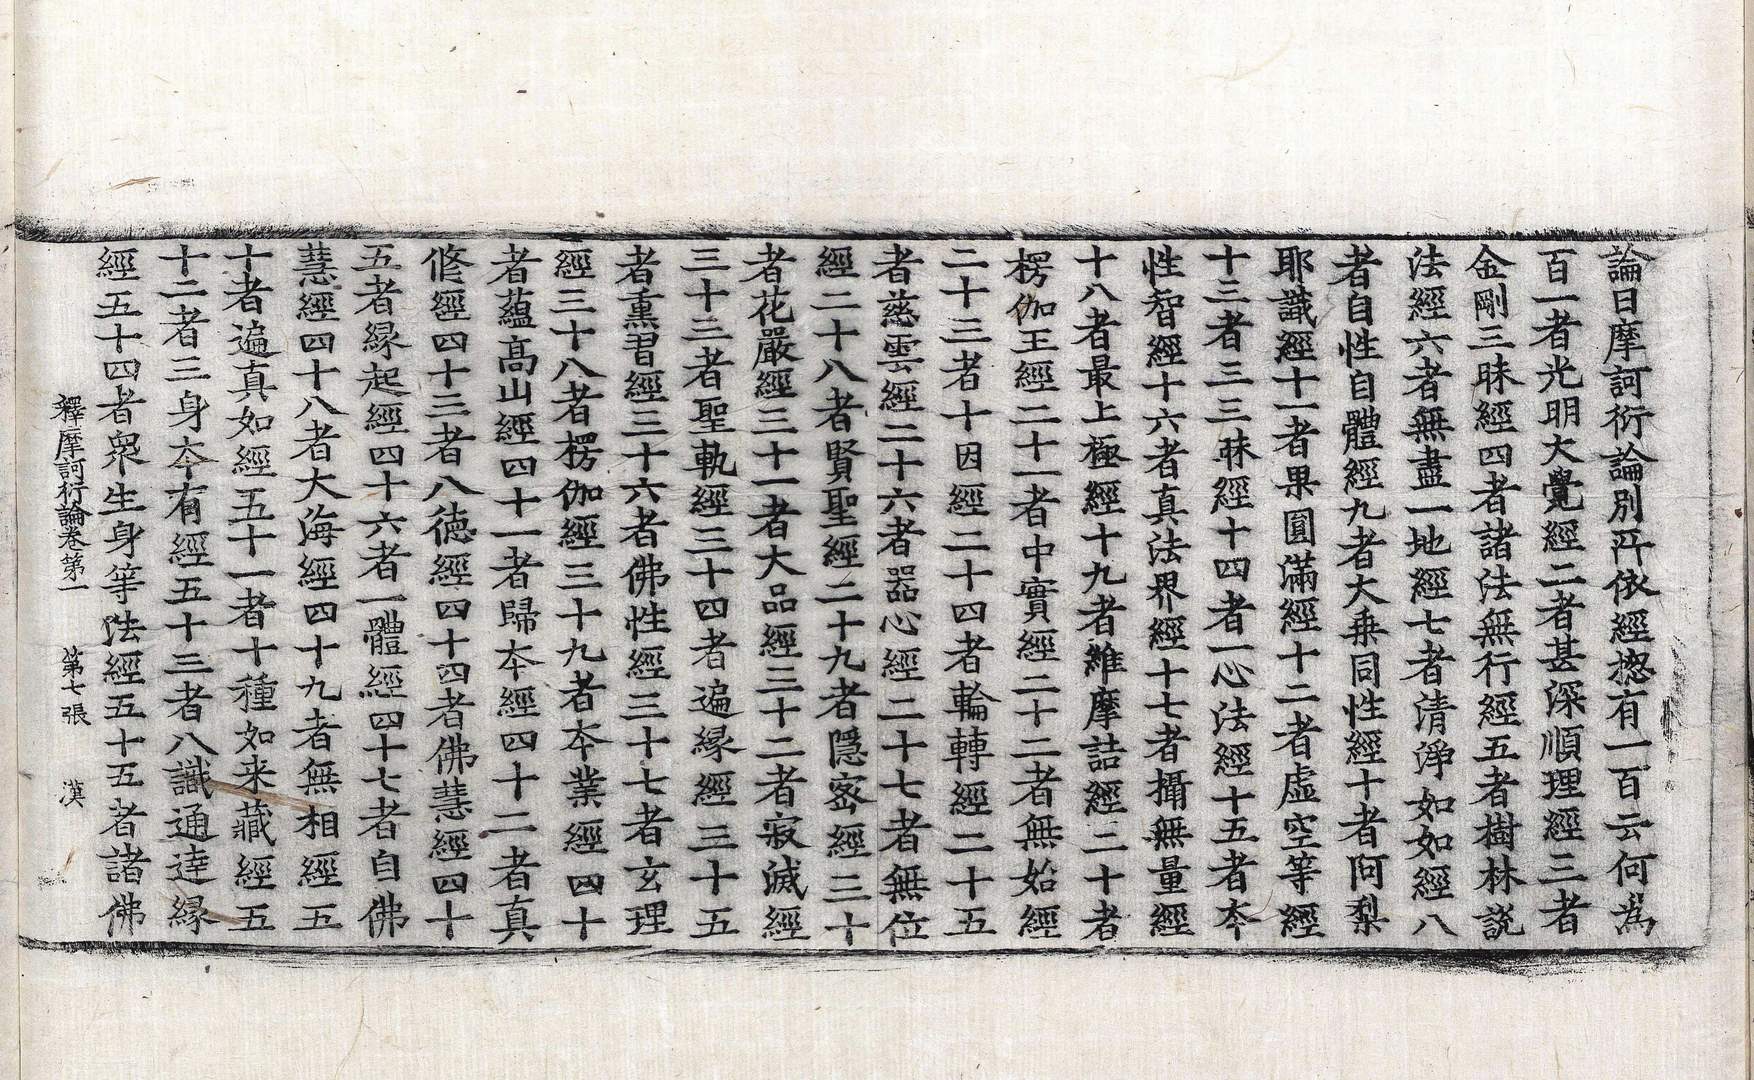 論曰摩訶衍論別所依經揔有一百云何為
百一者光明大覺經二者甚深順理經三者
金剛三昧經四者諸法無行經五者樹林說
法經六者無盡一地經七者清淨如如經八
者自性自體經九者大乗同性經十者阿梨
耶識經十一者果圓滿經十二者虛空等經
十三者三三昧經十四者一心法經十五者夲
性智經十六者真法界經十七者攝無量經
十八者最上極經十九者維摩詰經二十者
楞伽王經二十一者中實經二十二者無始經
二十三者十因經二十四者輪轉經二十五
者慈雲經二十六者器心經二十七者無位
經二十八者賢聖經二十九者隱密經三十
者花嚴經三十一者大品經三十二者寂滅經
三十三者聖軌經三十四者遍緣經三十五
者熏習經三十六者佛性經三十七者玄理
經三十八者楞伽經三十九者夲業經四十
者蘊髙山經四十一者歸夲經四十二者真
修經四十三者八德經四十四者佛慧經四十
五者緣起經四十六者一體經四十七者自佛
慧經四十八者大海經四十九者無相經五
十者遍真如經五十一者十種如来藏經五
十二者三身夲有經五十三者八識通達緣
經五十四者衆生身等法經五十五者諸佛
釋摩訶衍論卷第一 第七張 漢